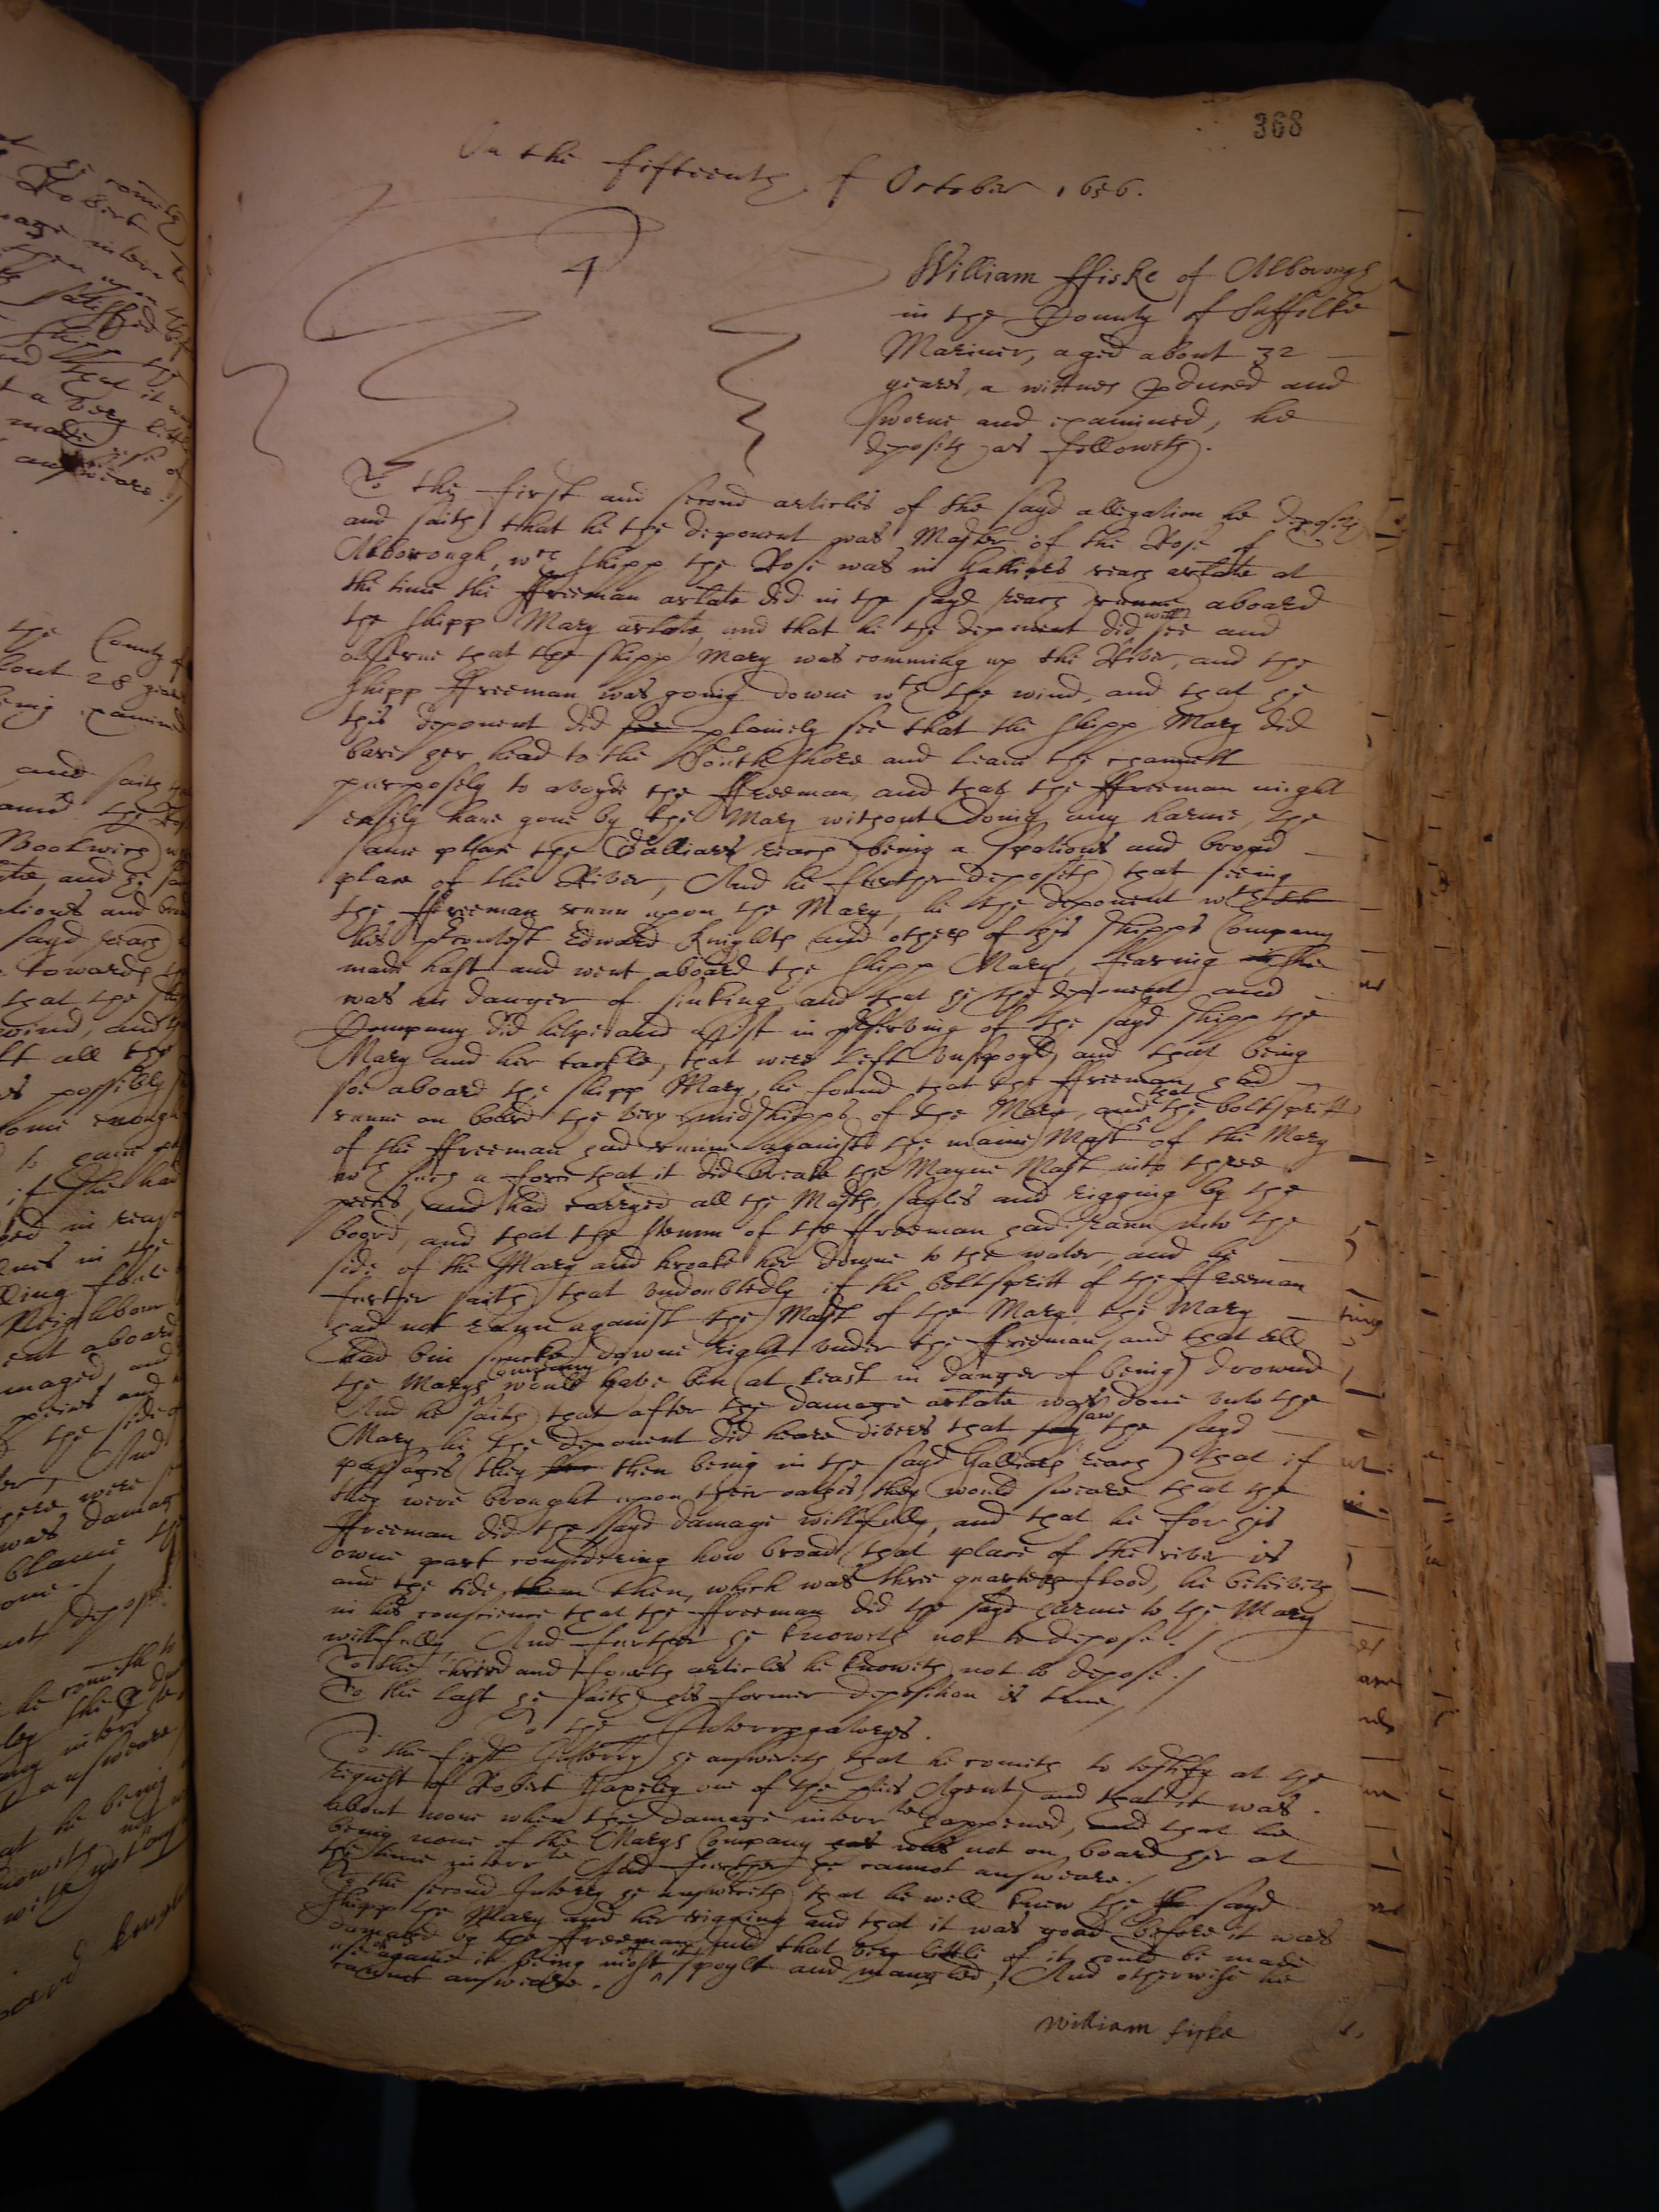 368
On the fifteenth of October 1656.
4
William ffiske of Alborough
in the County of Suffolke
Mariner, aged about 32
yeares, a wittnes pduced and
sworne and examined, he
deposeth as followeth.
To the first and second articles of the sayd allegation he deposeth
and saith that he the deponent was Master of the Rose of
Alborough, wch shipp the Rose was in Gallions reach arlate at
the time the ffreeman arlate did in the sayd reach runne aboard
the shipp Mary arlate, and that he the deponent did well see and
observe that the shipp Mary was comming up the River, and the
shipp ffreeman was going downe wth the wind, and that he
this deponent did see plainely see that the shipp Mary did
bare her head to the South shore and leave the channell
purposely to avoyde the ffreeman, and that the ffreeman might
easily have gone by the Mary without doing any harme, the
same place the Gallions reach being a spatious and broad
place of the River, And he further deposeth that seeing
the ffreeman runn upon the Mary, he the deponent wth
his contest Edward Knights and others of his shipps Company
made hast and went aboard the shipp Mary, fearing she
was in danger of sinking, and that he the deponent and
Company did helpe and assist in preserving of the sayd shipp the
Mary and her tackle, that were left unspoyld, and that being
soe aboard the shipp Mary, he found that the ffreeman had
runne on board the very midshipps of the Mary, and that the boltspritt
of the ffreeman had runne against the maine Mast of the Mary
wth such a force that it did breake the Mayne Mast into three
peeces, and had carryed all the Masts, sayles and rigging by the
board, and that the stemm of the ffreeman had rann into the
side of the Mary and broake her downe to the water, and he
further saith that undoubtedly if the boltspritt of the ffreeman
had not rann against the Mast of the Mary, the Mary
had bin suncke downe right under the ffreeman, and that all
the Marys Company would have bin (at least in danger of being) drownd
And he saith that after the damage arlate was done unto the
Mary, he the deponent did heare divers that saw the sayd
passages (they then being in the sayd Gallions reach) that if
they were brought upon their oathes, they would sweare that the
ffreeman did the sayd damage willfully, and that he for his
owne part considering how broad that place of the river is
and the tide then, which was three quarters flood, he beleiveth
in his conscience that the ffreeman did the sayd harme to the Mary
willfully, And further he knoweth not to depose./
To the third and fourth articles he knoweth not to depose./
To the last he saith his former deposition is true./
To the Interrogatoryes.
To the first Interry he answereth that he cometh to testify at the
request of Robert one of the ptes Agents, and that it was
about noone when the damage interrte happened, and that he
being none of the Marys Company was not on board her at
the time interrte And further he cannot answeare./
To the second Interry he answereth that he well knew the sayd
shipp the Mary and her rigging and that it was good before it was
damaged by the ffreeman and that very little of it could be made
use of againe it being most spoylt and mangled, And otherwise he
cannot answeare.
William fiske